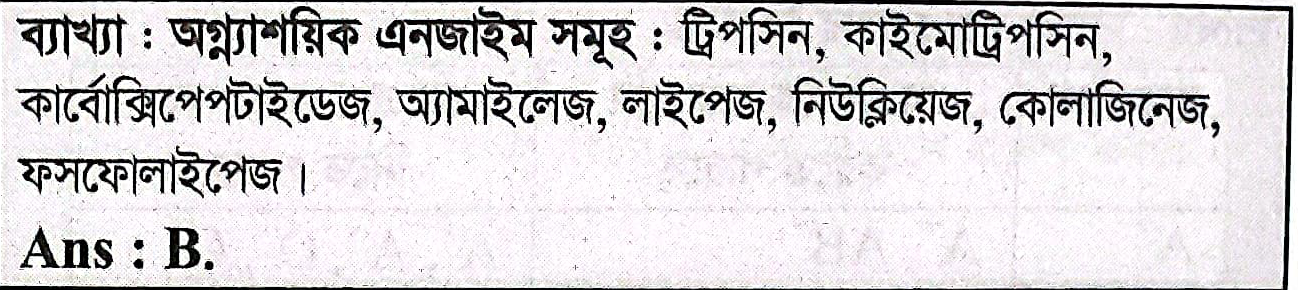 ব্যাখ্যা : অগ্ন্যাশয়িক এনজাইম সমূহ : ট্রিপসিন, কাইমোট্রিপসিন,
কার্বোক্সিপেপটাইডেজ, অ্যামাইলেজ, লাইপেজ, নিউক্লিয়েজ, কোলাজিনেজ,
ফসফোলাইপেজ।
Ans : B.